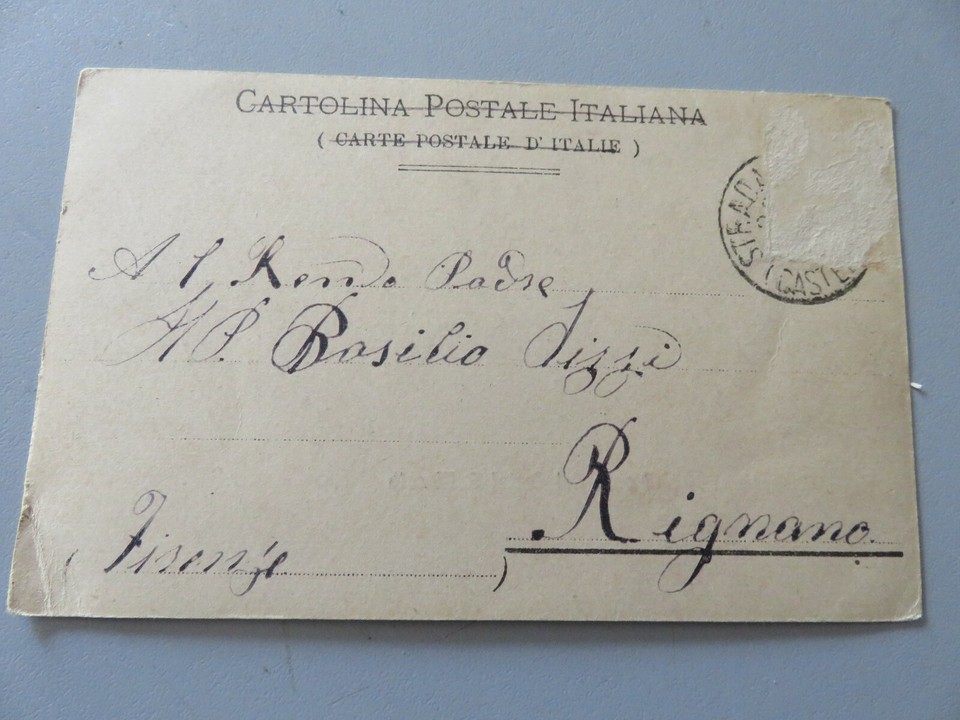 CARTOLINA POSTALE ITALIANA
( CARTE POSTALE D'ITALIE )
STRADA
(CASTE
Al Rendo Padre
P. Basilio Pizzi
Rignano
( Firenze )